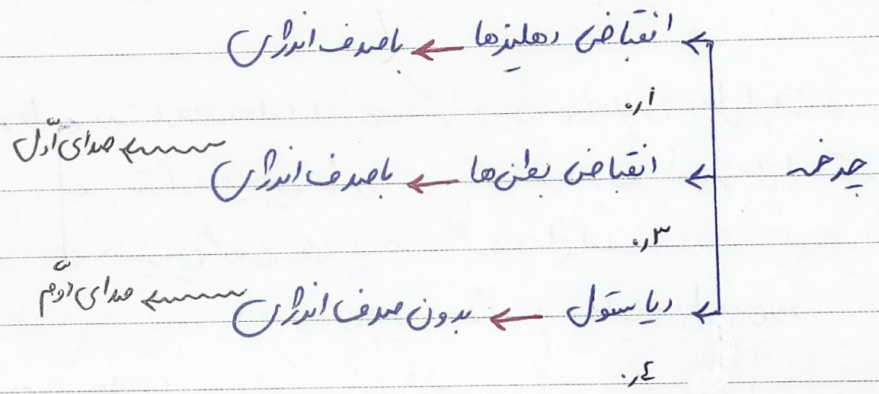 انقباض دهلیزها ← با صرف انرژی
۰٫۱
چرخه
انقباض بطن‌ها ← با صرف انرژی ← صدای اوّل
۰٫۳
دیاستول ← بدون صرف انرژی ← صدای دوّم
۰٫۴